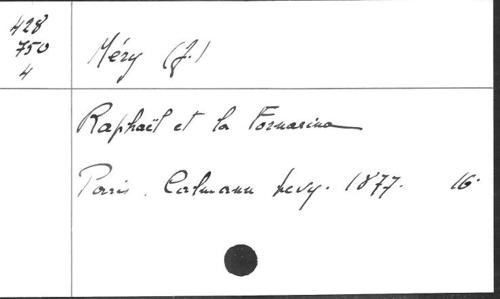 428
750
4
Méry (J.)
Raphaël et la Fornarina
Paris. Calmann Levy. 1877. 16°